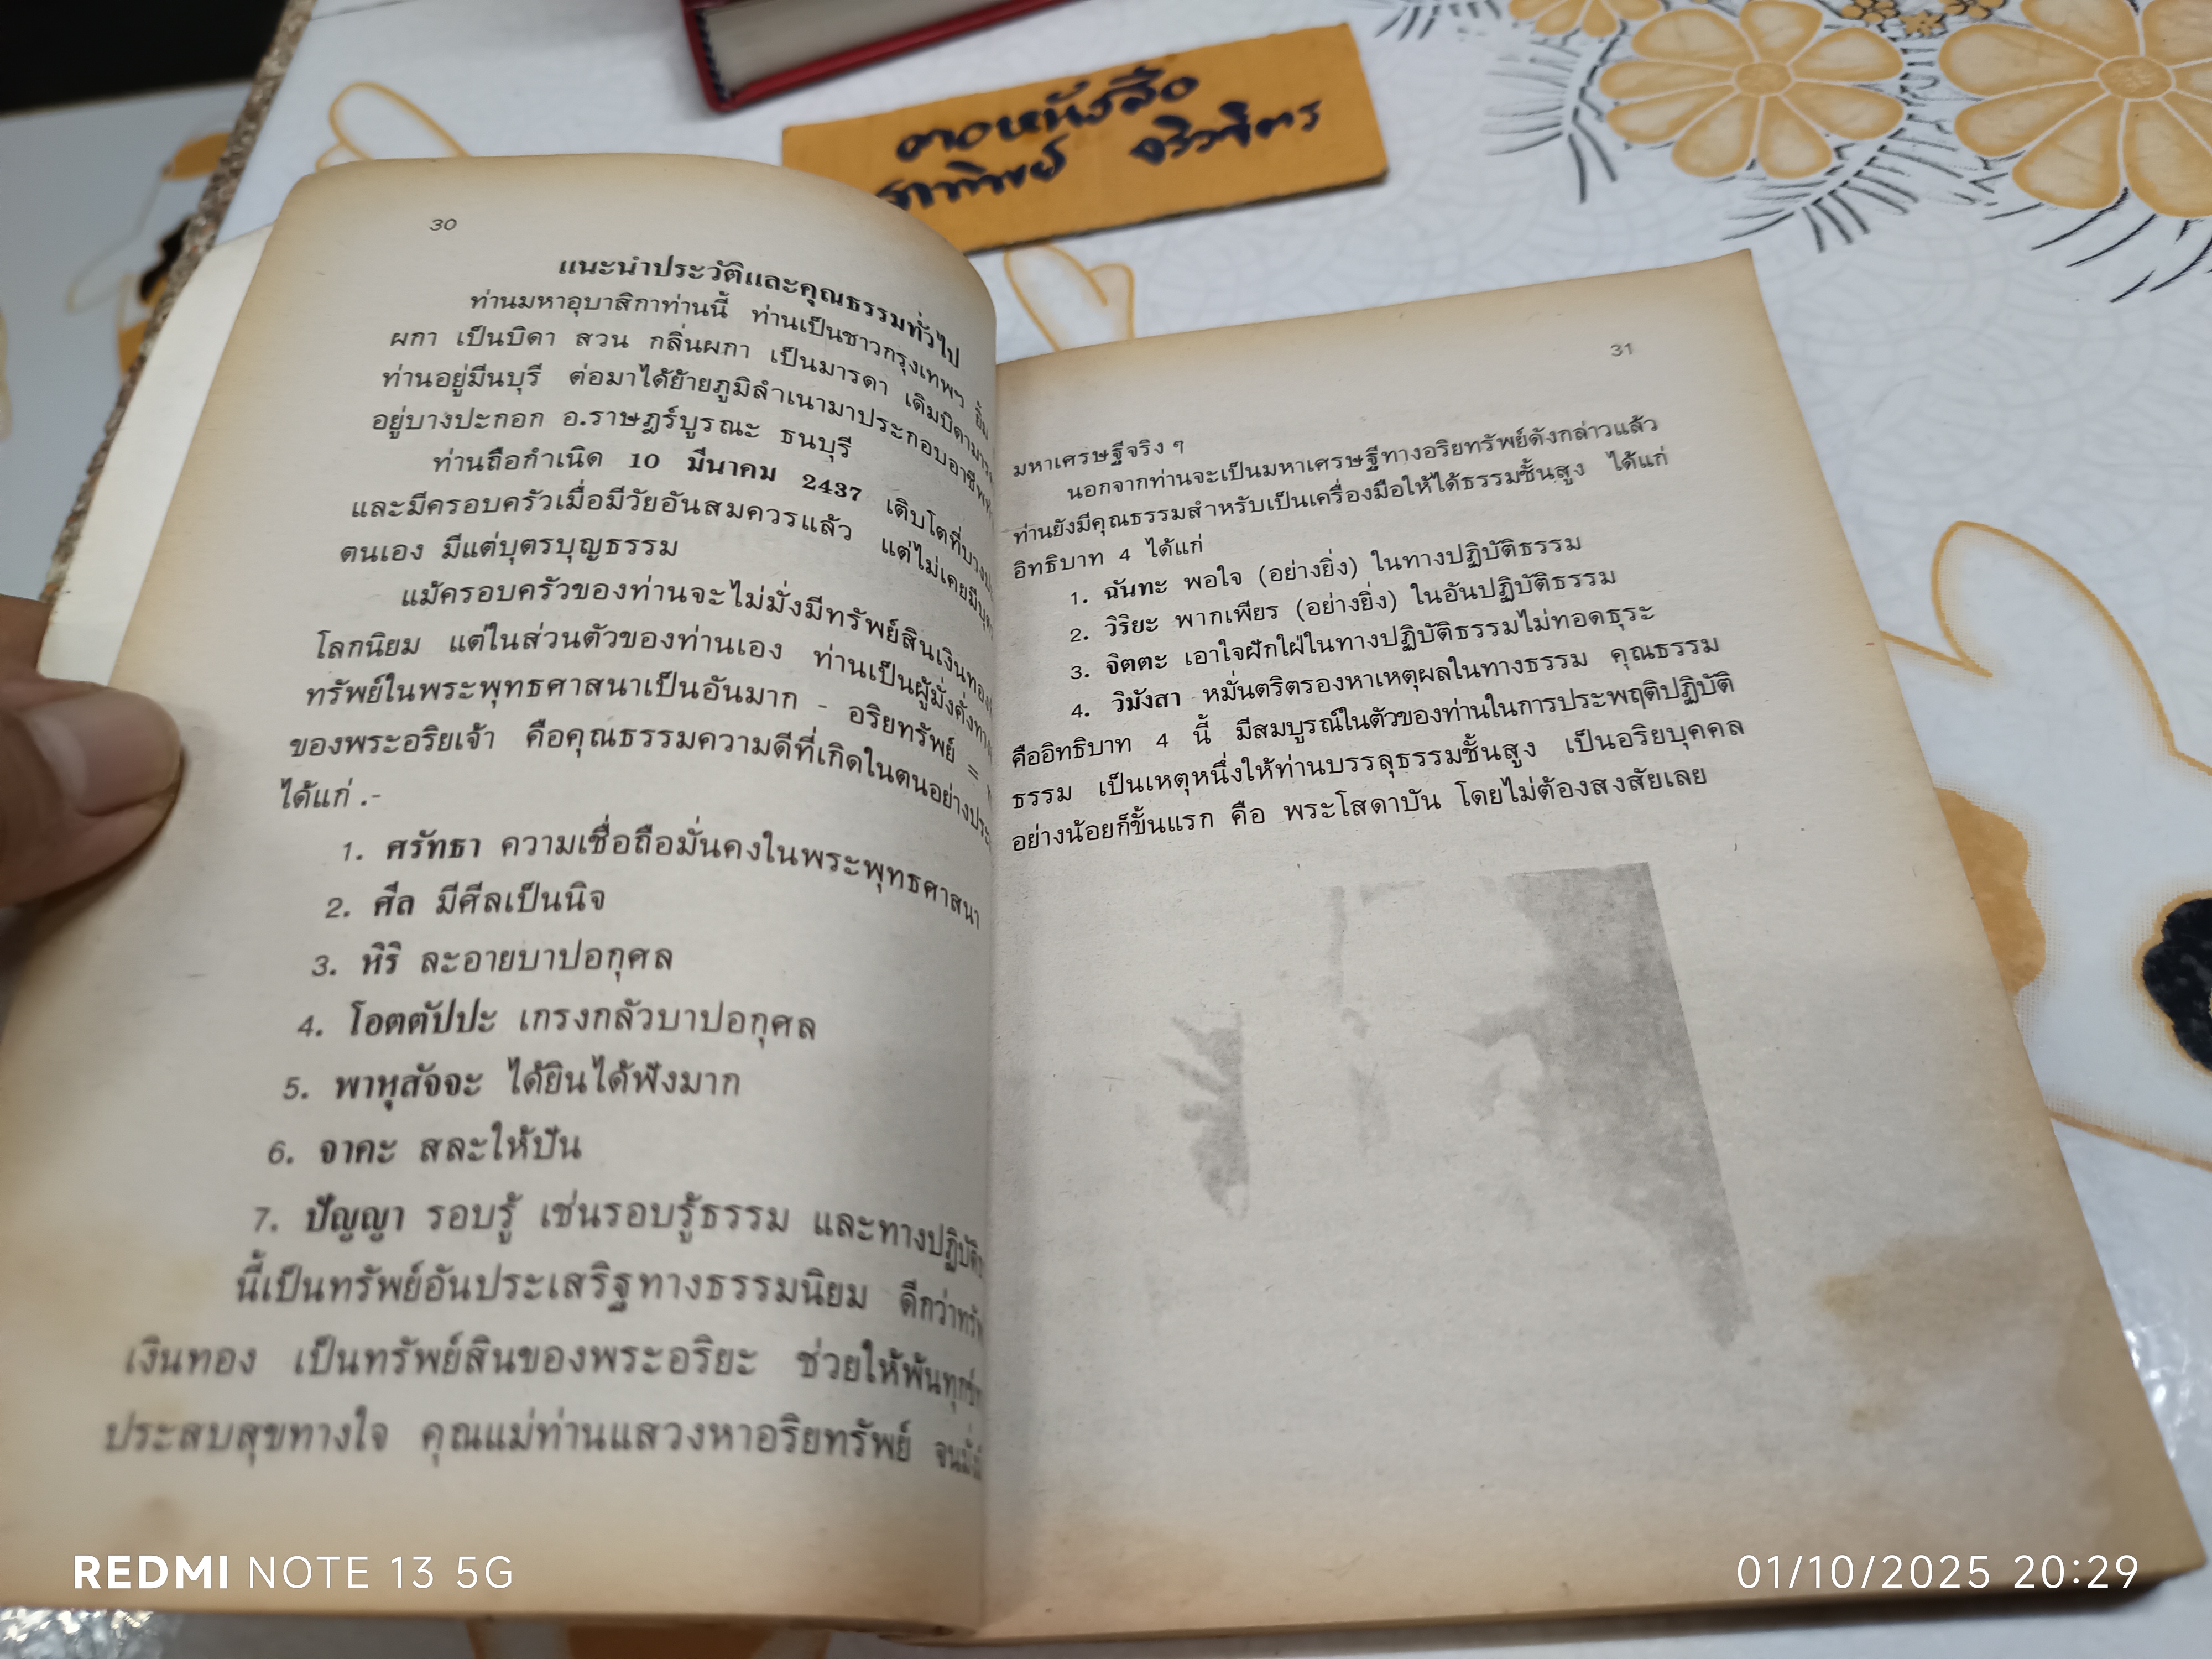 ตอหนังสือ
จริวจิตร
30
แนะนำประวัติและคุณธรรมทั่วไป
ท่านมหาอุบาสิกาท่านนี้ ท่านเป็นชาวกรุงเทพฯ ยิ้ม
ผกา เป็นบิดา สวน กลิ่นผกา เป็นมารดา เดิมบิดามารดา
ท่านอยู่มีนบุรี ต่อมาได้ย้ายภูมิลำเนามาประกอบอาชีพ
อยู่บางปะกอก อ.ราษฎร์บูรณะ ธนบุรี
ท่านถือกำเนิด 10 มีนาคม 2437 เติบโตที่
และมีครอบครัวเมื่อมีวัยอันสมควรแล้ว แต่ไม่เคยมี
ตนเอง มีแต่บุตรบุญธรรม
แม้ครอบครัวของท่านจะไม่มั่งมีทรัพย์สินเงินทอง
โลกนิยม แต่ในส่วนตัวของท่านเอง ท่านเป็นผู้มั่งคั่งทาง
ทรัพย์ในพระพุทธศาสนาเป็นอันมาก - อริยทรัพย์ =
ของพระอริยเจ้า คือคุณธรรมความดีที่เกิดในตนอย่าง
ได้แก่ .-
1. ศรัทธา ความเชื่อถือมั่นคงในพระพุทธศาสนา
2. ศีล มีศีลเป็นนิจ
3. หิริ ละอายบาปอกุศล
4. โอตตัปปะ เกรงกลัวบาปอกุศล
5. พาหุสัจจะ ได้ยินได้ฟังมาก
6. จาคะ สละให้ปัน
7. ปัญญา รอบรู้ เช่นรอบรู้ธรรม และทางปฏิบัติ
นี้เป็นทรัพย์อันประเสริฐทางธรรมนิยม ดีกว่า
เงินทอง เป็นทรัพย์สินของพระอริยะ ช่วยให้พ้นทุกข์
ประสบสุขทางใจ คุณแม่ท่านแสวงหาอริยทรัพย์ จน
31
มหาเศรษฐีจริง ๆ
นอกจากท่านจะเป็นมหาเศรษฐีทางอริยทรัพย์ดังกล่าวแล้ว
ท่านยังมีคุณธรรมสำหรับเป็นเครื่องมือให้ได้ธรรมชั้นสูง ได้แก่
อิทธิบาท 4 ได้แก่
1. ฉันทะ พอใจ (อย่างยิ่ง) ในทางปฏิบัติธรรม
2. วิริยะ พากเพียร (อย่างยิ่ง) ในอันปฏิบัติธรรม
3. จิตตะ เอาใจฝักใฝ่ในทางปฏิบัติธรรมไม่ทอดธุระ
4. วิมังสา หมั่นตริตรองหาเหตุผลในทางธรรม คุณธรรม
คืออิทธิบาท 4 นี้ มีสมบูรณ์ในตัวของท่านในการประพฤติปฏิบัติ
ธรรม เป็นเหตุหนึ่งให้ท่านบรรลุธรรมชั้นสูง เป็นอริยบุคคล
อย่างน้อยก็ขั้นแรก คือ พระโสดาบัน โดยไม่ต้องสงสัยเลย
REDMI NOTE 13 5G
01/10/2025 20:29